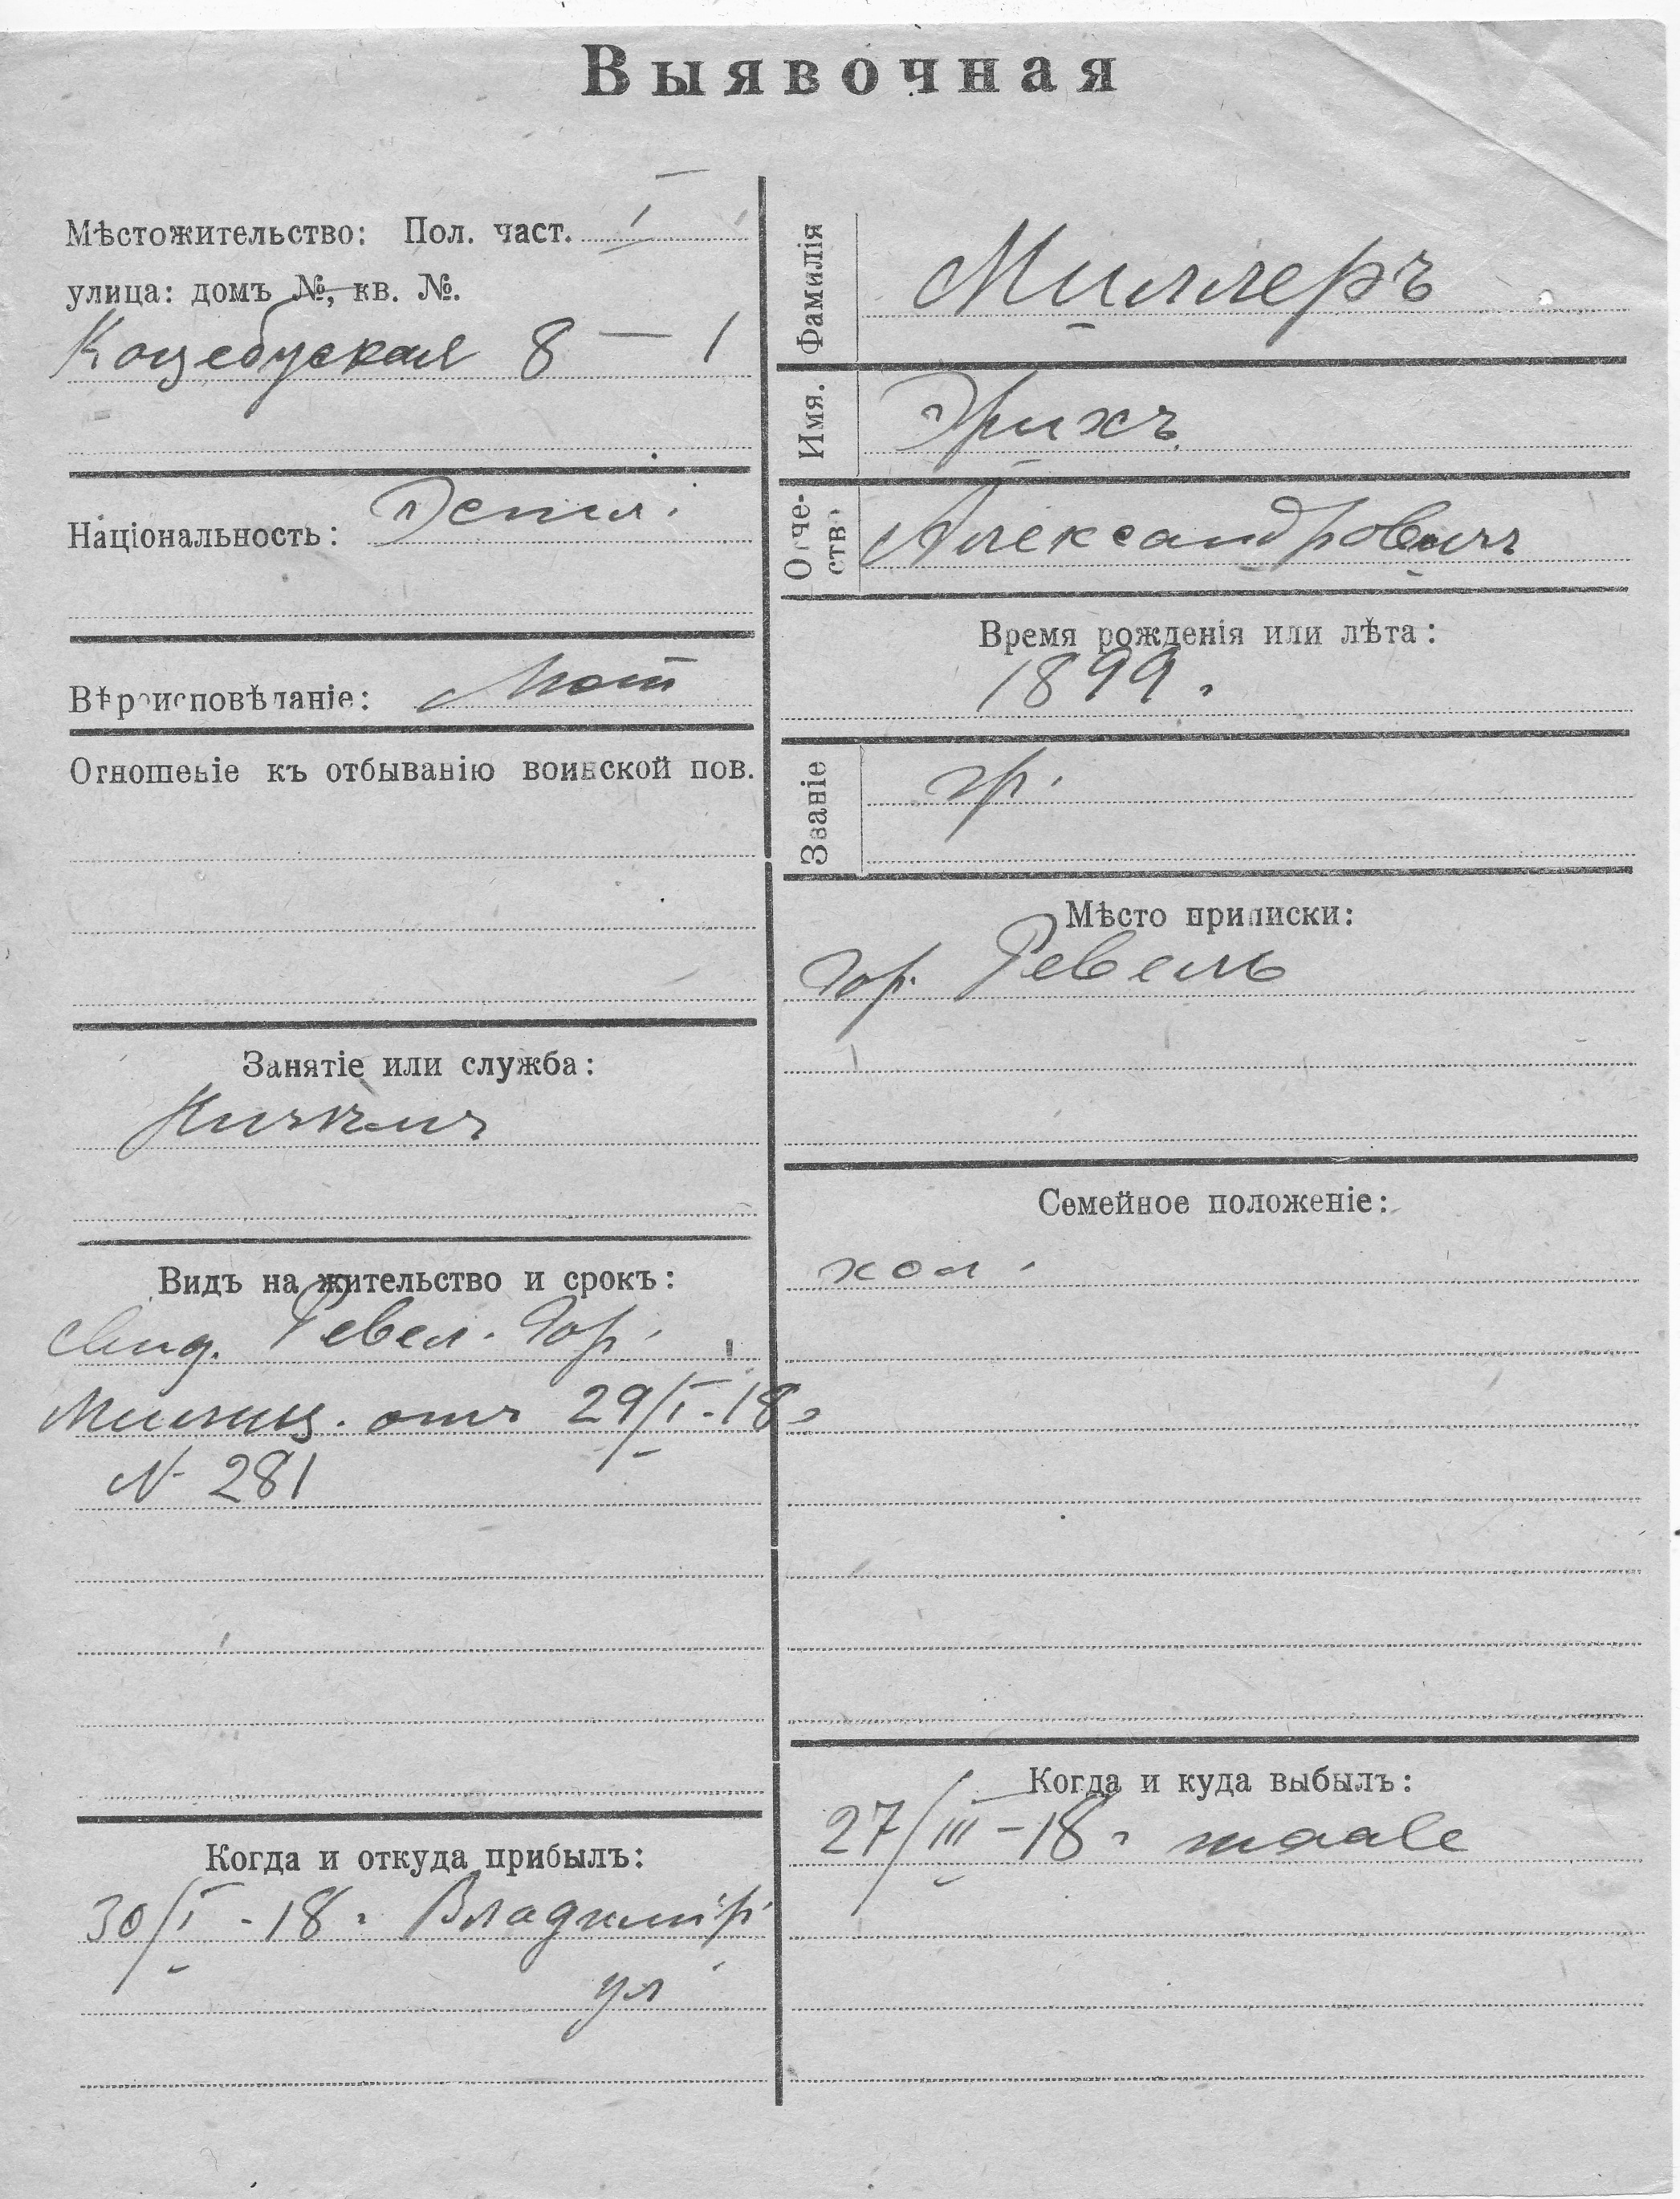 Выявочная
Мѣстожительство: Пол. част. I
улица: домъ №, кв. №.
Коцебуская 8 — 1
Національность: Эстл.
Вѣроисповѣданіе: Лют
Отношеніе къ отбыванію воинской пов.
Занятіе или служба:
Видъ на жительство и срокъ:
Ревел. Гор.
Милиц. отъ 29/I - 18 г
№ 281
Когда и откуда прибылъ:
30/I - 18 г Владимір
ул
Фамилія Миллеръ
Имя. Эрихъ
Отчество Александровичъ
Время рожденія или лѣта:
1899.
Званіе гр.
Мѣсто приписки:
Гор. Ревель
Семейное положеніе:
хол.
Когда и куда выбылъ:
27/III - 18 г maale